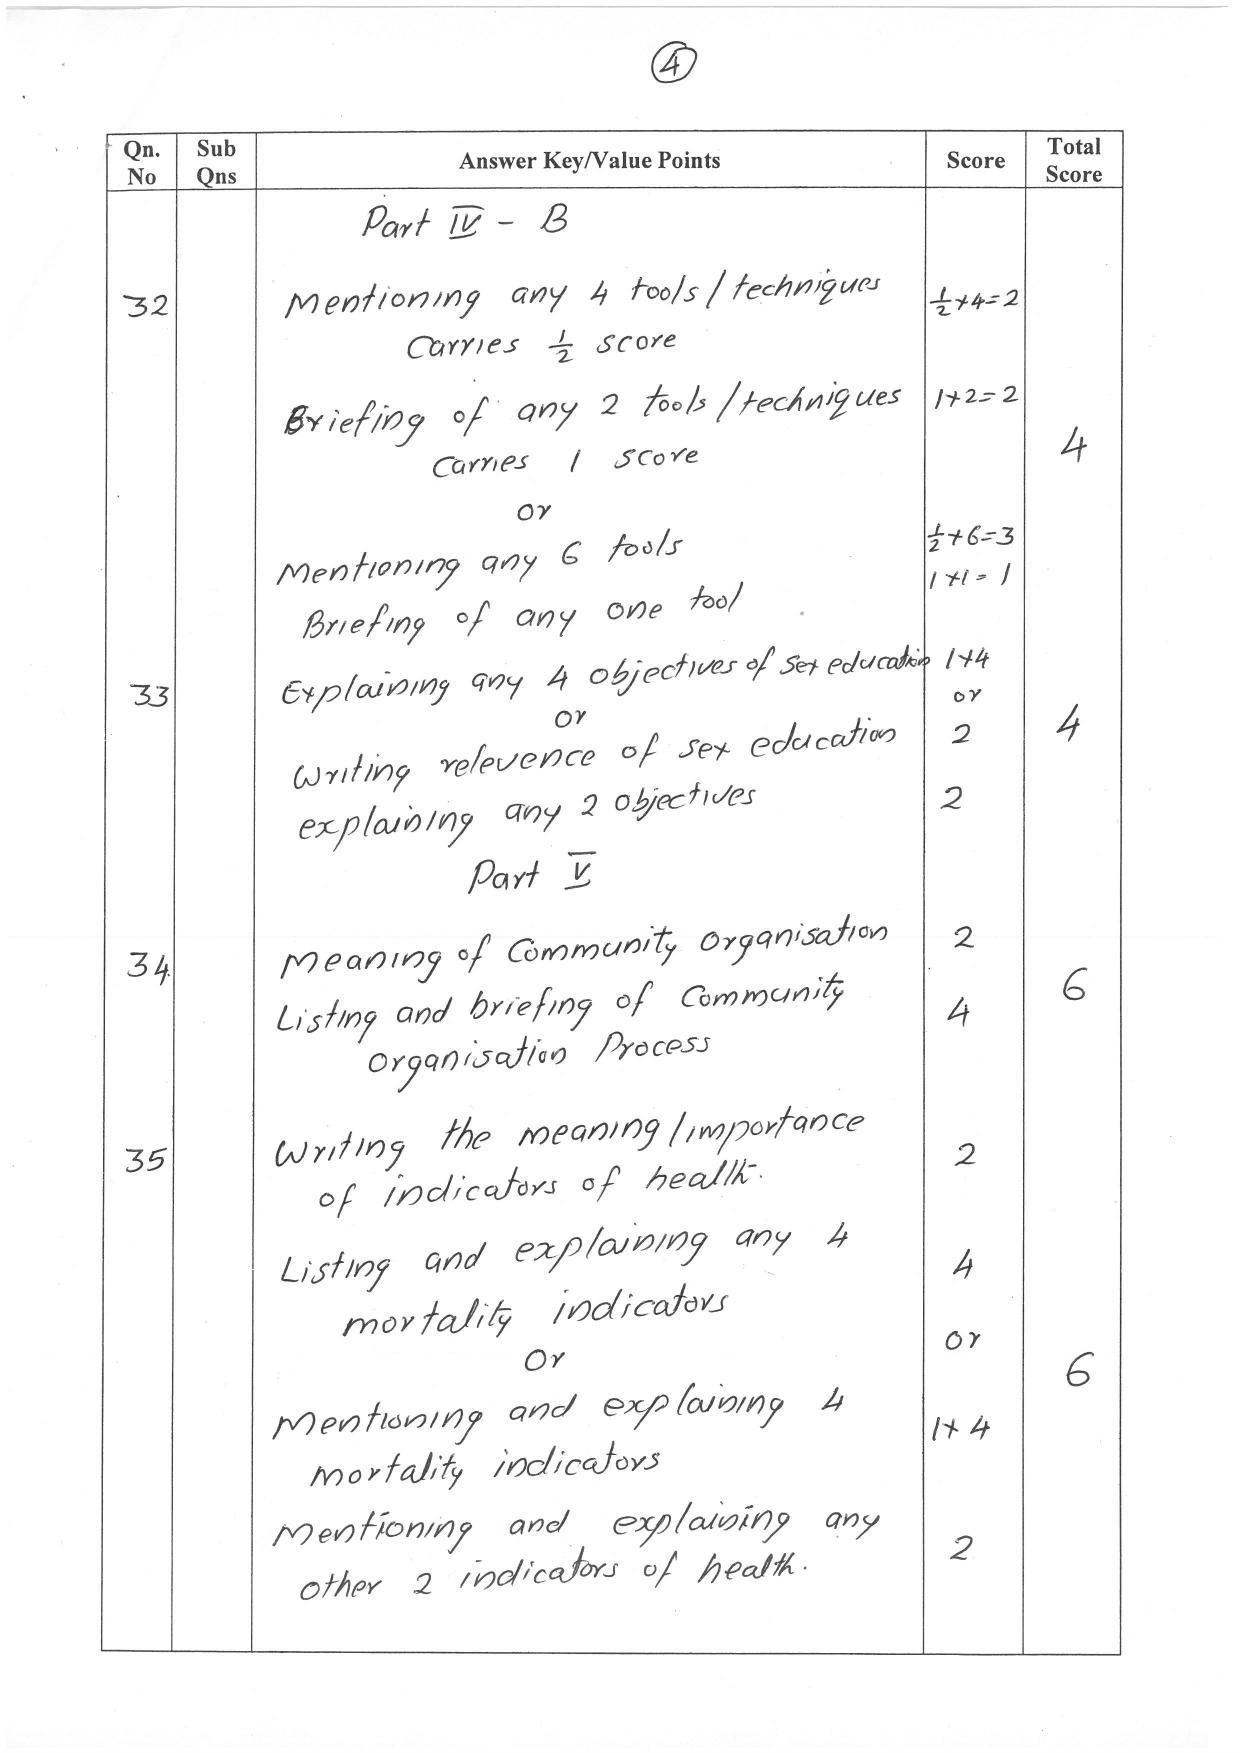 4
Qn. No Sub Qns Answer Key/Value Points Score Total Score
Part IV - B
32 Mentioning any 4 tools/techniques ½+4=2
Carries ½ score
Briefing of any 2 tools/techniques 1+2=2
Carries 1 score
4
or
Mentioning any 6 tools ½+6=3
Briefing of any one tool 1+1=1
33 Explaining any 4 objectives of sex education 1+4
or or
Writing relevence of sex education 2 4
explaining any 2 objectives 2
Part V
34 Meaning of Community Organisation 2
Listing and briefing of Community 4 6
Organisation Process
35 Writing the meaning/importance 2
of indicators of health.
Listing and explaining any 4 4
mortality indicators
Or or
6
Mentioning and explaining 4 1+4
mortality indicators
Mentioning and explaining any 2
other 2 indicators of health.